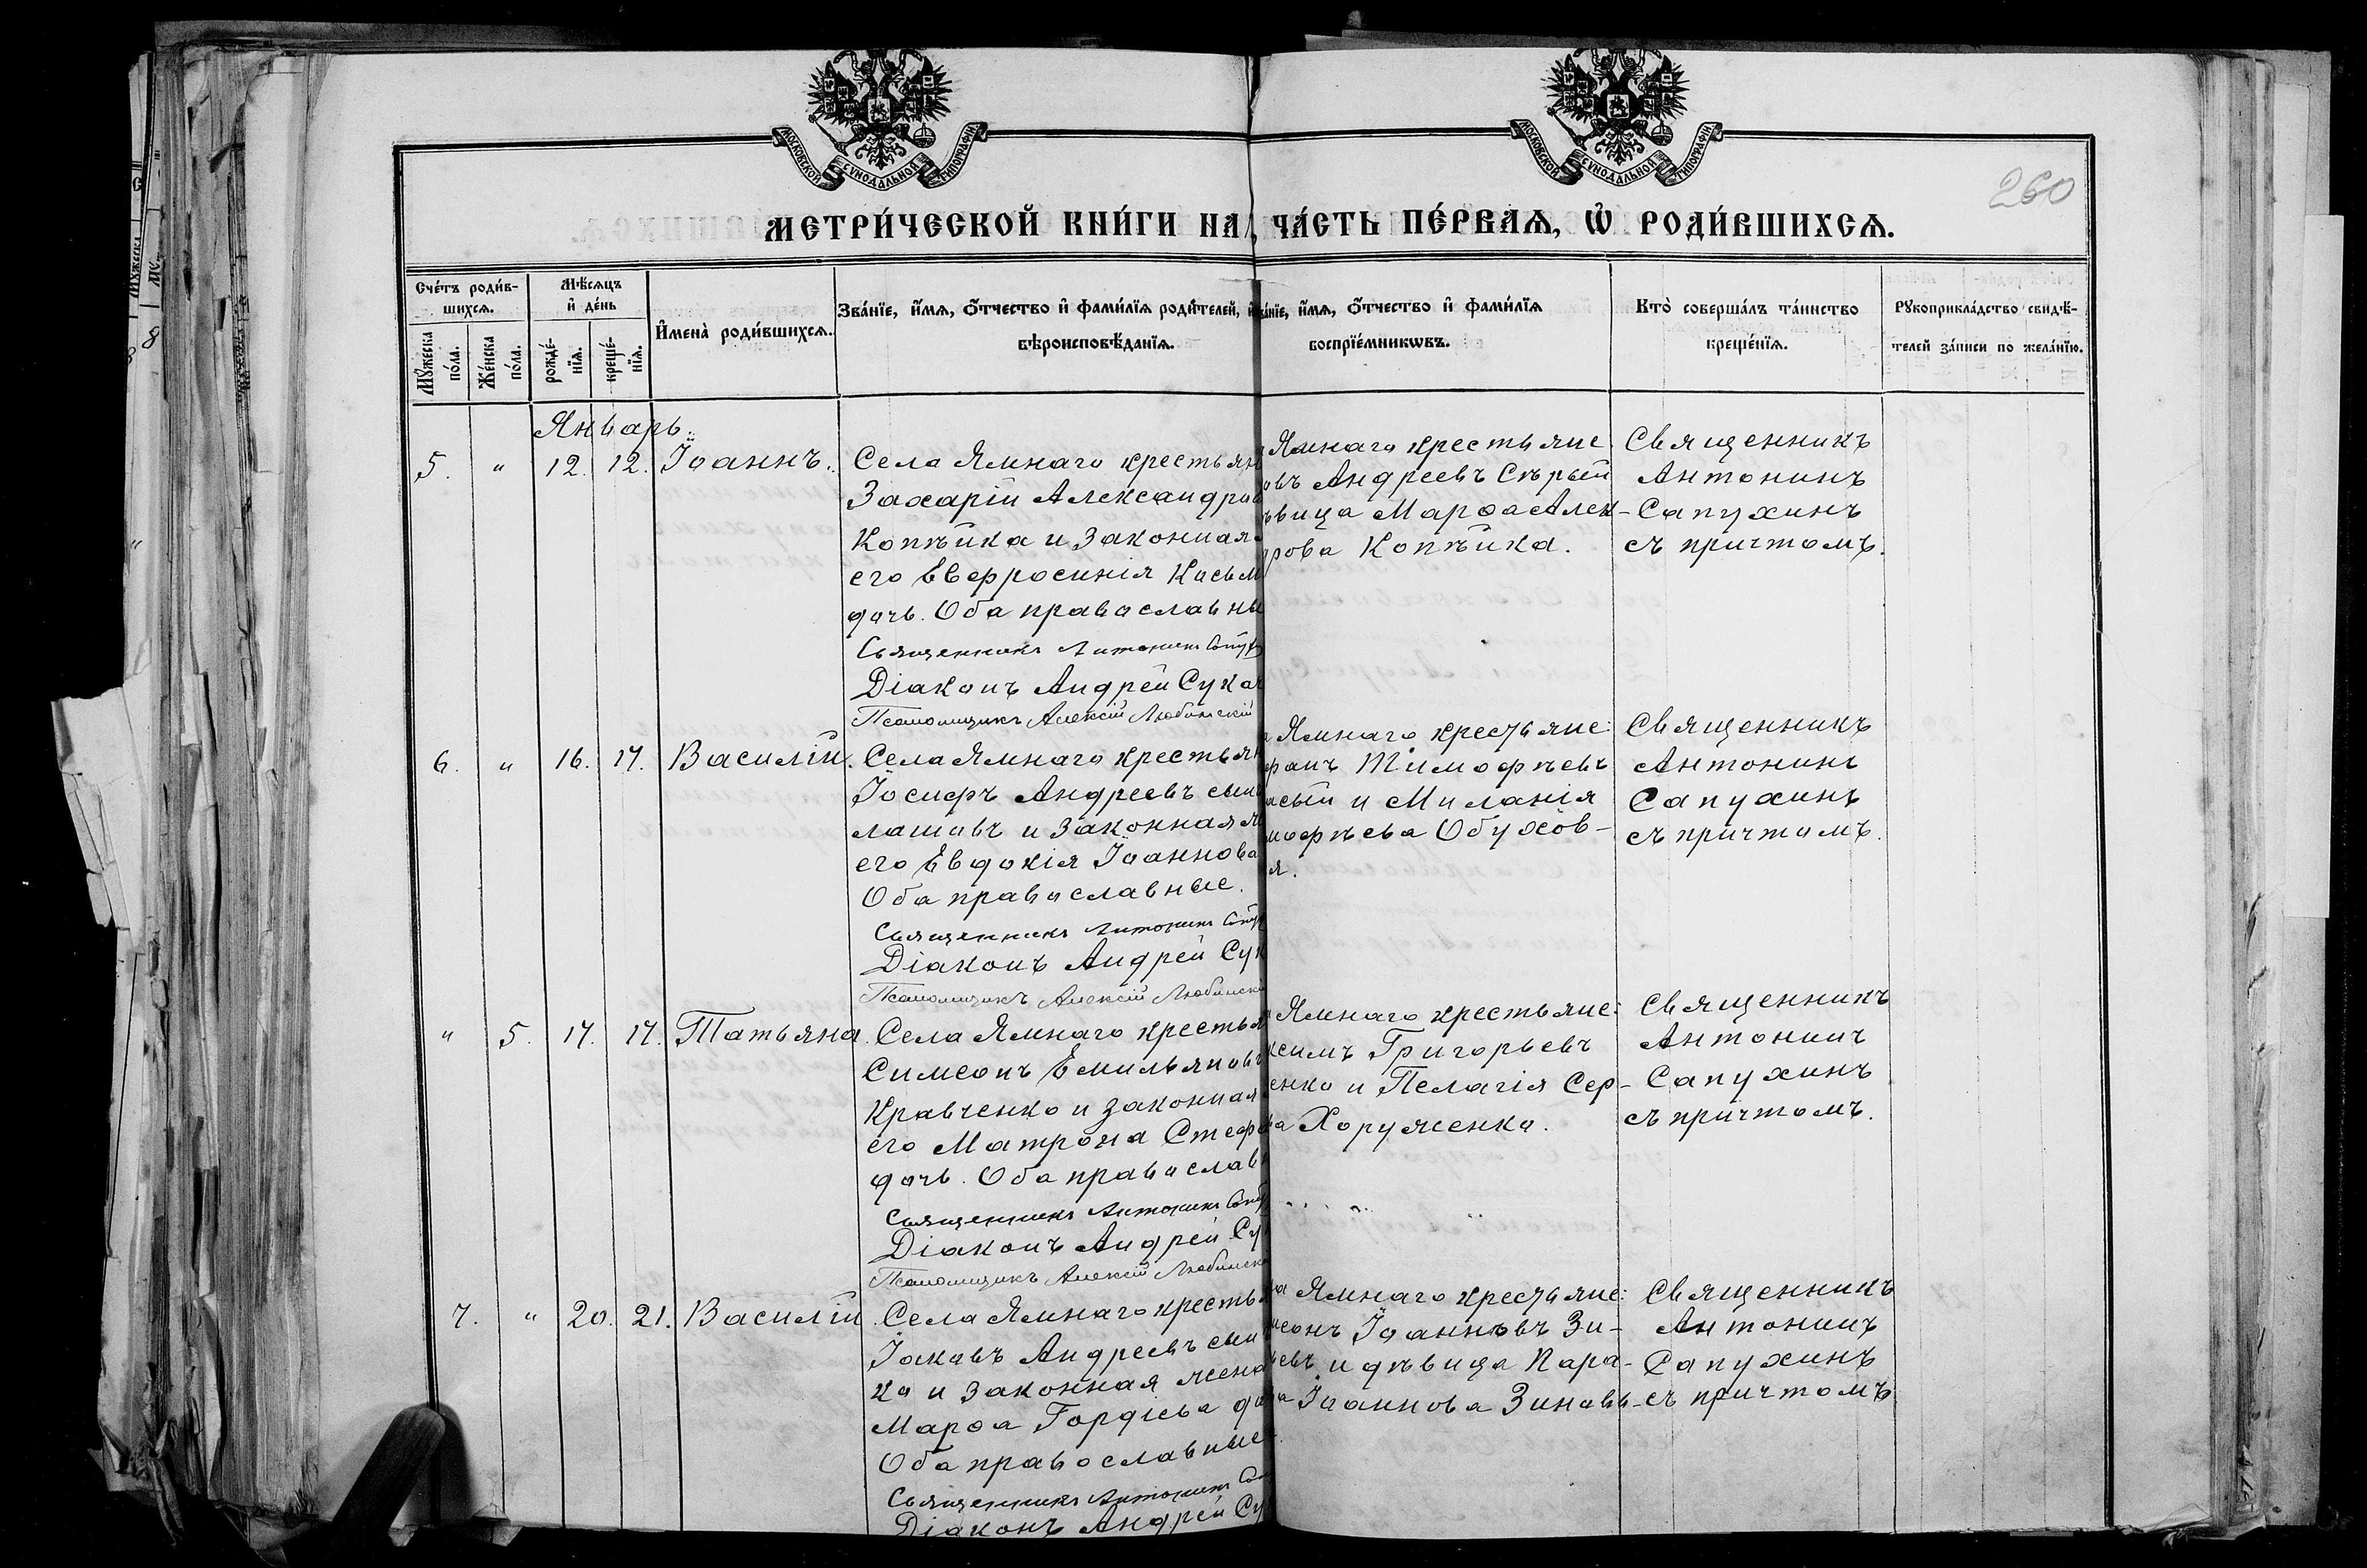 МОСКОВСКОЙ СУНОДАЛЬНОЙ ТИПОГРАФІИ
МОСКОВСКОЙ СУНОДАЛЬНОЙ ТИПОГРАФІИ
260
МЕТРИ́ЧЕСКОЙ КНИ́ГИ НА
ЧА́СТЬ ПЕ́РВАѦ, Ѡ҆ РОДИ́ВШИХСѦ.
Сче́тъ роди́в-
шихсѧ.
Мꙋ́жеска по́ла.
Же́нска по́ла.
Мѣ́сѧцъ
и҆ де́нь
рожде́-
нїѧ.
креще́-
нїѧ.
И҆мена̀ роди́вшихсѧ.
Зва́нїе, и҆́мѧ, ѻ҆́тчество и҆ фами́лїѧ роди́телей, и҆
вѣроисповѣ́данїѧ.
ва́нїе, и҆́мѧ, ѻ҆́тчество и҆ фами́лїѧ
воспрїе́мникѡвъ.
Кто̀ соверша́лъ та́инство
креще́нїѧ.
Рꙋкоприкла́дство свидѣ́-
телей за́писи по жела́нїю.
Январь.
5. " 12. 12. Іоаннъ.
Села Ямнаго крестьян
Захарій Александров
Копѣйка и законная
его Евфросинія Косьм
дочь. Оба православны
Священникъ Антонинъ Сапух
Діаконъ Андрей Сука
Псаломщикъ Алексій Любинскій
Ямнаго крестьяне
овъ Андреевъ Сѣрый
ѣвица Марѳа Алек-
дрова Копѣйка.
Священникъ
Антонинъ
Сапухинъ
съ причтомъ.
6. " 16. 17. Василій.
Села Ямнаго крестьян
Іосифъ Андреевъ сынъ
лашовъ и законная ж
его Евдокія Іоаннова
Оба православные.
Священникъ Антонинъ Сапу
Діаконъ Андрей Сук
Псаломщикъ Алексій Любинскі
Ямнаго крестьяне:
фанъ Тимофѣевъ
асый и Миланія
мофѣева Обухов-
я.
Священникъ
Антонинъ
Сапухинъ
съ причтомъ.
" 5. 17. 17. Татьяна.
Села Ямнаго крестья
Симеонъ Емильяновъ
Кравченко и законная
его Матрона Стеф
дочь. Оба православ
Священникъ Антонинъ Сапу
Діаконъ Андрей Су
Псаломщикъ Алексій Любинск
Ямнаго крестьяне:
ксимъ Григорьевъ
енко и Пелагія Сер-
ва Хоруженко.
Священникъ
Антонинъ
Сапухинъ
съ причтомъ.
7. " 20. 21. Василій.
Села Ямнаго кресть
Іаковъ Андреевъ сын
ко и законная жена
Марѳа Гордіева до
Оба православные
Священникъ Антонинъ Сап
Діаконъ Андрей Су
на Ямнаго крестьяне:
меонъ Іоанновъ Зи-
ьевъ и дѣвица Пара-
ва Іоаннова Зиновь-
Священникъ
Антонинъ
Сапухинъ
съ причтомъ